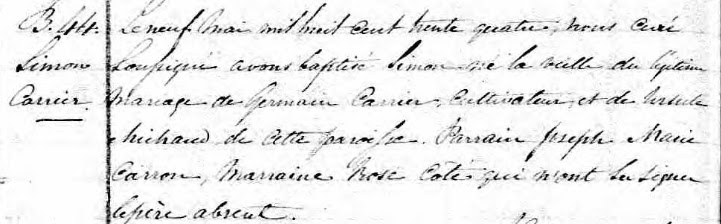 B. 44. Le neuf Mai mil huit cent trente quatre, nous curé
Simon Soussigné avons baptisé Simon né la veille du légitime
Carrier. mariage de Germain Carrier, Cultivateur, et de Ursule
Michaud de cette paroisse. Parrain Joseph Marie
Carron, Marraine Rose Coté qui n'ont su signer
le père absent.